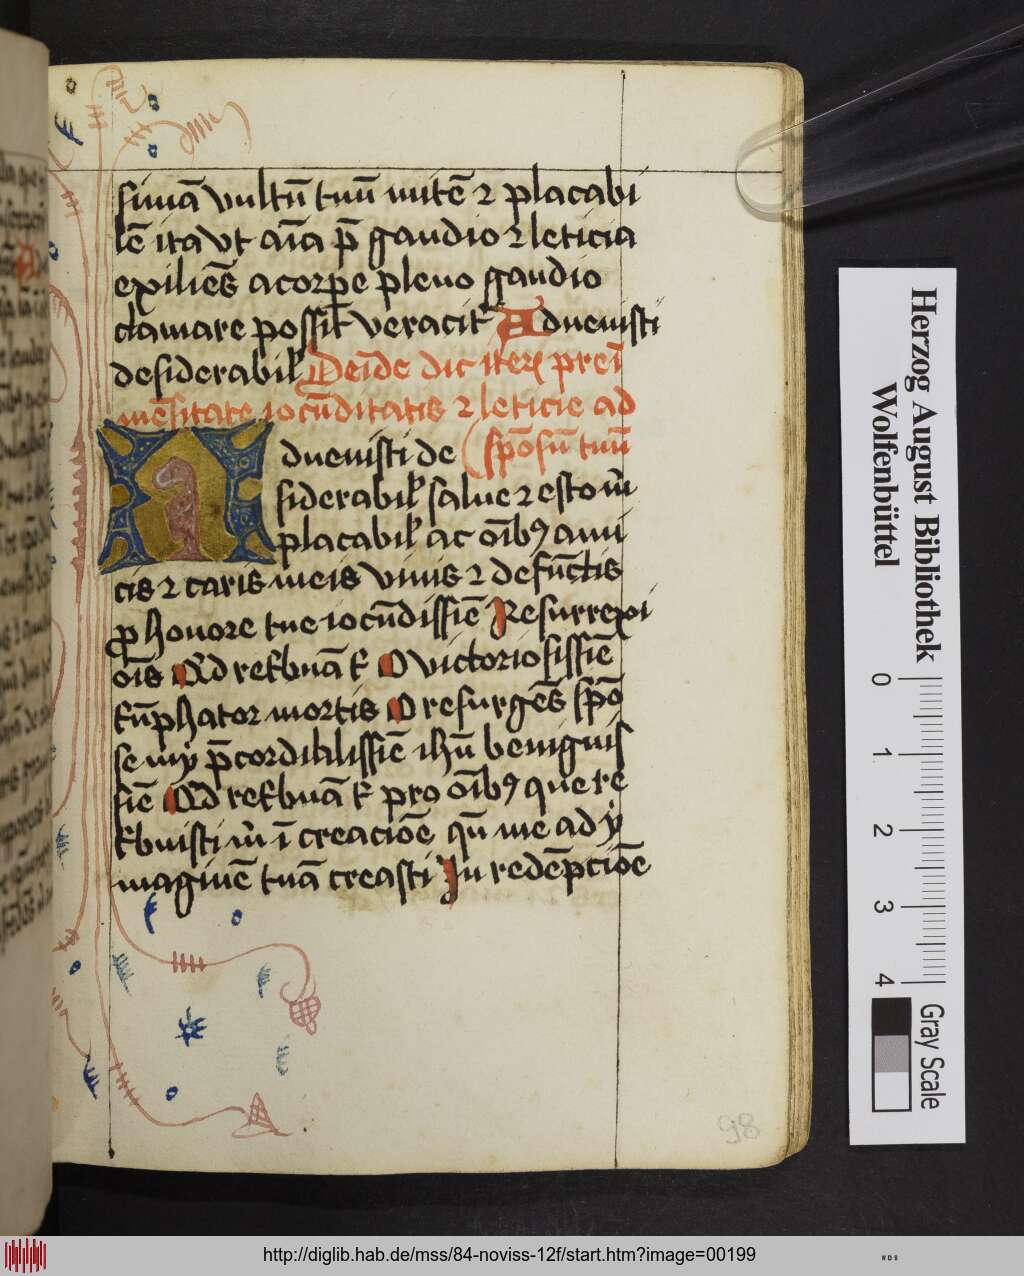 simā vultū tuū mitē ⁊ placabi
lē ita vt aīa p̄ gaudio ⁊ leticia
exiliēs a corpe pleno gaudio
clamare possit veracitʳ Aduenisti
desiderabilꝭ Deīde dic iterꝭ prei
mēsitate iocūditatis ⁊ leticie ad
spōsū tuū
Aduenisti de
siderabilꝭ salue ⁊ esto m̄
placabilꝭ ac oībꝯ ami
cis ⁊ caris meis viuis ⁊ defūctis
ꝓ honore tue iocūdissiē Resurrexi
ōis Qd retbuā t O victoriosissiē
tūphator mortis O resurgēs spō
se mỹ p̄cordialissiē ihū benignis
siē Qd retbuā t pro oībꝯ que re
tbuisti m̄ ī creacioē qn̄ me ad ẏ
maginē tuā creasti In redēpcioē
98
Herzog August Bibliothek
Wolfenbüttel
0 1 2 3 4
Gray Scale
http://diglib.hab.de/mss/84-noviss-12f/start.htm?image=00199